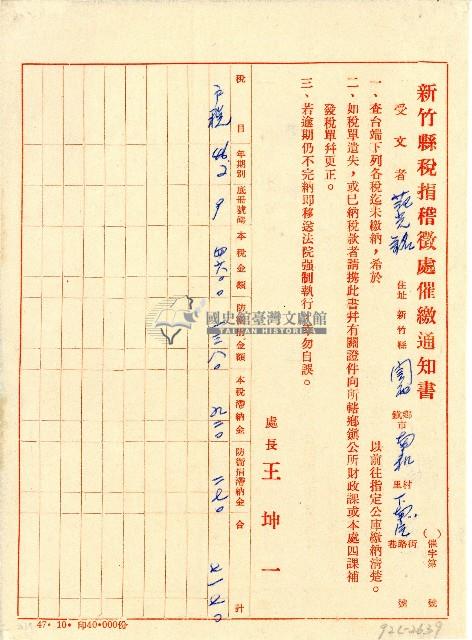 新竹縣稅捐稽徵處催繳通知書
( )催字第 號
受文者 范光銘 住址 新竹縣 關西 鄉鎮市 南和 村里 街路巷 號
一、查台端下列各稅迄未繳納,希於 以前往指定公庫繳納清楚。
二、如稅單遺失,或已納稅款者請携此書幷有關證件向所轄鄉鎮公所財政課或本處四課補
發稅單幷更正。
三、若逾期仍不完納即移送法院强制執行,幸勿自誤。
處長 王坤一
稅目 年期別 底冊號碼 本稅金額 防衛捐金額 本稅滯納金 防衛捐滯納金 合計
戶稅 46 2 9
47·10·印40·000份
國史館臺灣文獻館
TAIWAN HISTORICA
922-2639